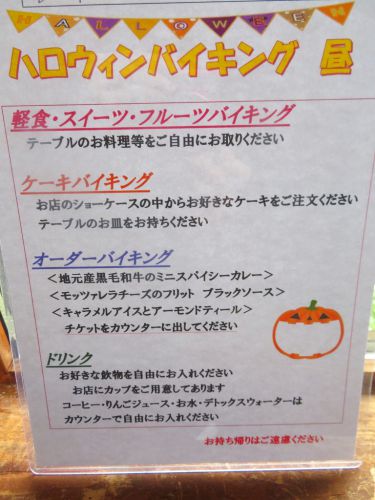 HALLOWEEN
ハロウィンバイキング 昼
軽食・スイーツ・フルーツバイキング
テーブルのお料理等をご自由にお取りください
ケーキバイキング
お店のショーケースの中からお好きなケーキをご注文ください
テーブルのお皿をお持ちください
オーダーバイキング
＜地元産黒毛和牛のミニスパイシーカレー＞
＜モッツァレラチーズのフリット ブラックソース＞
＜キャラメルアイスとアーモンドティール＞
チケットをカウンターに出してください
ドリンク
お好きな飲物を自由にお入れください
お店にカップをご用意してあります
コーヒー・りんごジュース・お水・デトックスウォーターは
カウンターで自由にお入れください
お持ち帰りはご遠慮ください